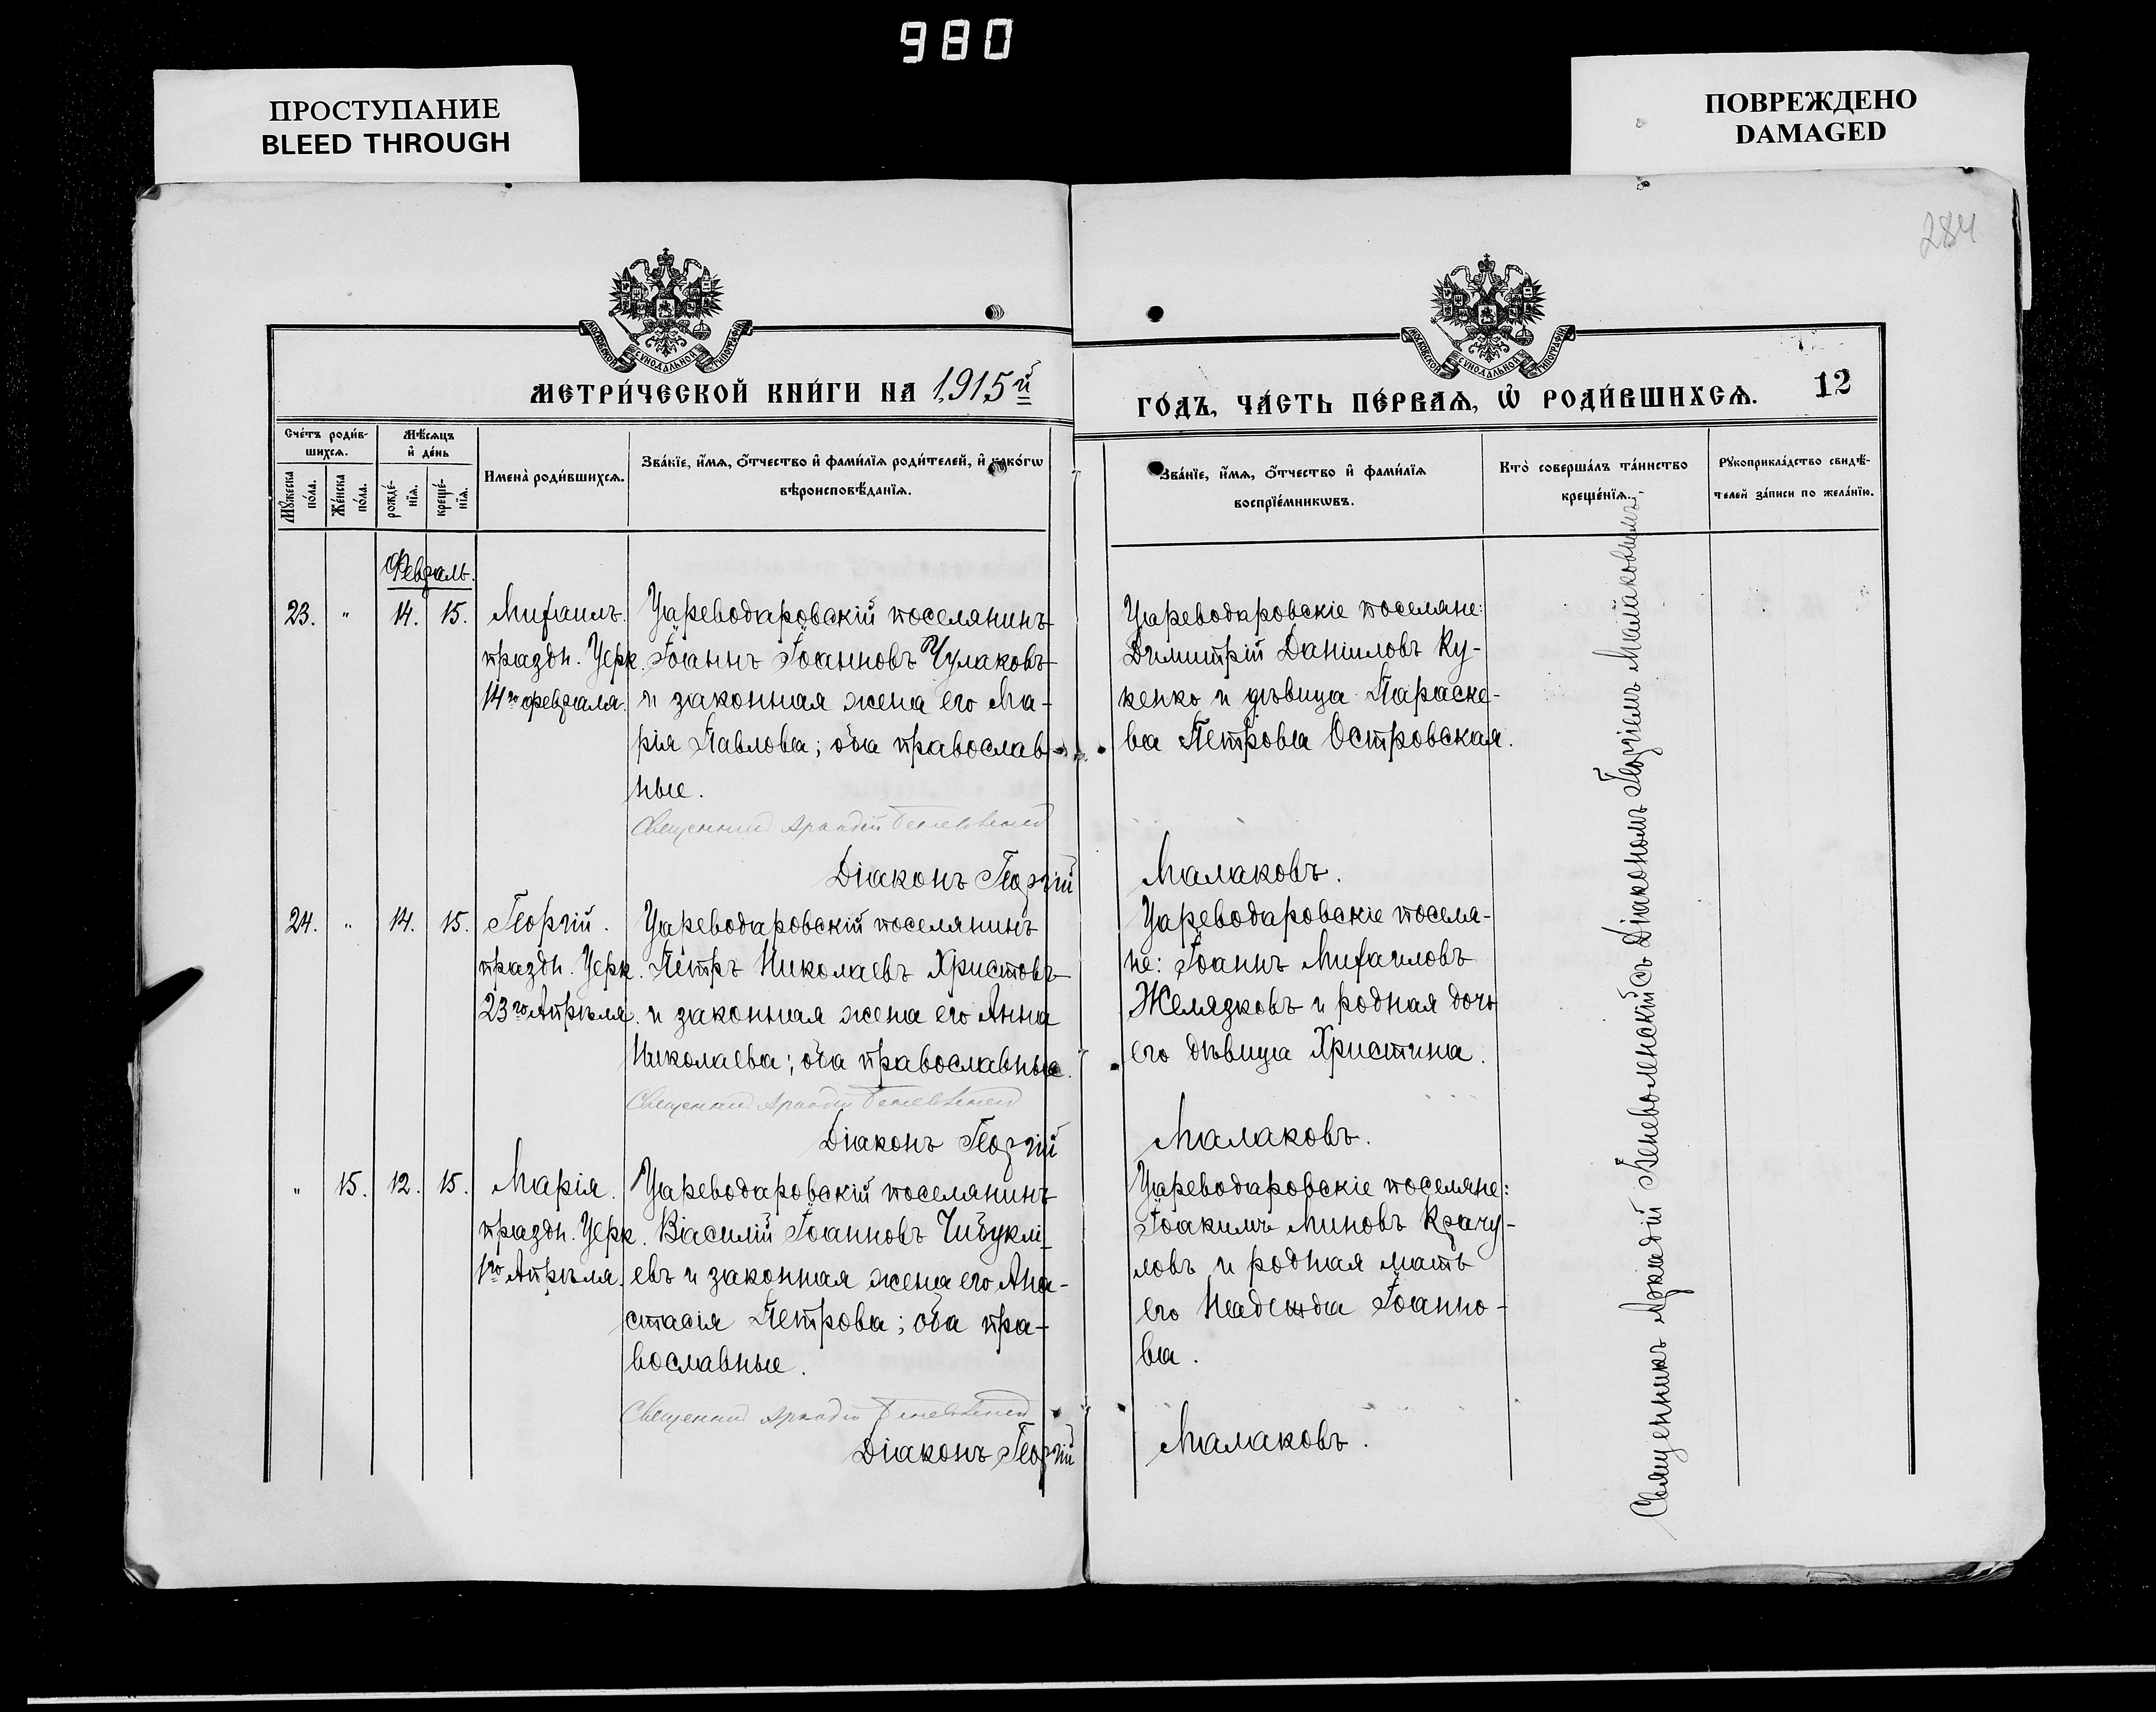 980
ПРОСТУПАНИЕ
BLEED THROUGH
ПОВРЕЖДЕНО
DAMAGED
284
МОСКОВСКОЙ СѴНОДАЛЬНОЙ ТИПОГРАФІИ
МОСКОВСКОЙ СѴНОДАЛЬНОЙ ТИПОГРАФІИ
МЕТРИ́ЧЕСКОЙ КНИ́ГИ НА 1915й
ГО́ДЪ, ЧА́СТЬ ПЕ́РВАѦ, Ѡ҆ РОДИ́ВШИХСѦ.
12
Сче́тъ роди́в-
шихсѧ.
Мꙋ́жеска
по́ла.
Же́нска
по́ла.
Мѣ́сѧцъ
и҆ де́нь
рожде́-
нїѧ.
креще́-
нїѧ.
И҆мена̀ роди́вшихсѧ.
Зва́нїе, и҆́мѧ, ѻ҆́тчество и҆ фами́лїѧ роди́телей, и҆ како́гѡ
вѣроисповѣ́данїѧ.
Зва́нїе, и҆́мѧ, ѻ҆́тчество и҆ фами́лїѧ
воспрїе́мникѡвъ.
Кто̀ соверша́лъ та́инство
креще́нїѧ.
Рꙋкоприкла́дство свидѣ́-
телей за́писи по жела́нїю.
Февраль.
23. " 14. 15. Михаилъ.
праздн. Церк.
14го февраля.
Цареводаровскій поселянинъ
Іоаннъ Іоанновъ Чулаковъ
и законная жена его Ма-
рія Павлова; оба православ-
ные.
Священник Аркадій
Діаконъ Георгій
Цареводаровскіе поселяне:
Димитрій Даніиловъ Ку-
кенко и дѣвица Параске-
ва Петрова Островская.
Малаковъ.
24. " 14. 15. Георгій.
праздн. Церк.
23го Апрѣля.
Цареводаровскій поселянинъ
Петръ Николаевъ Христовъ
и законная жена его Анна
Николаева; оба православные.
Священник Аркадій
Діаконъ Георгій
Цареводаровскіе поселя-
не: Іоаннъ Михаиловъ
Желязковъ и родная дочь
его дѣвица Христина.
Малаковъ.
" 15. 12. 15. Марія.
праздн. Церк.
1го Апрѣля.
Цареводаровскій поселянинъ
Василій Іоанновъ Чибукли-
евъ и законная жена его Ана-
стасія Петрова; оба пра-
вославные.
Священник Аркадій
Діаконъ Георгій
Цареводаровскіе поселяне:
Іоакимъ Миновъ Крачу-
ловъ и родная мать
его Надежда Іоанно-
ва.
Малаковъ.
Священникъ Аркадій Беневоленскій съ Діакономъ Георгіемъ Малаковымъ.